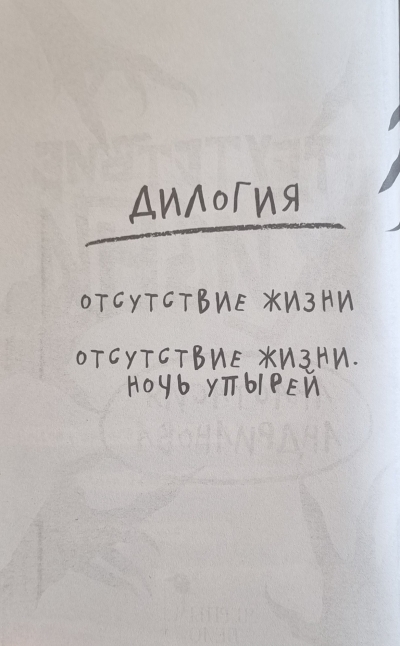 ДИЛОГИЯ
ОТСУТСТВИЕ ЖИЗНИ
ОТСУТСТВИЕ ЖИЗНИ.
НОЧЬ УПЫРЕЙ